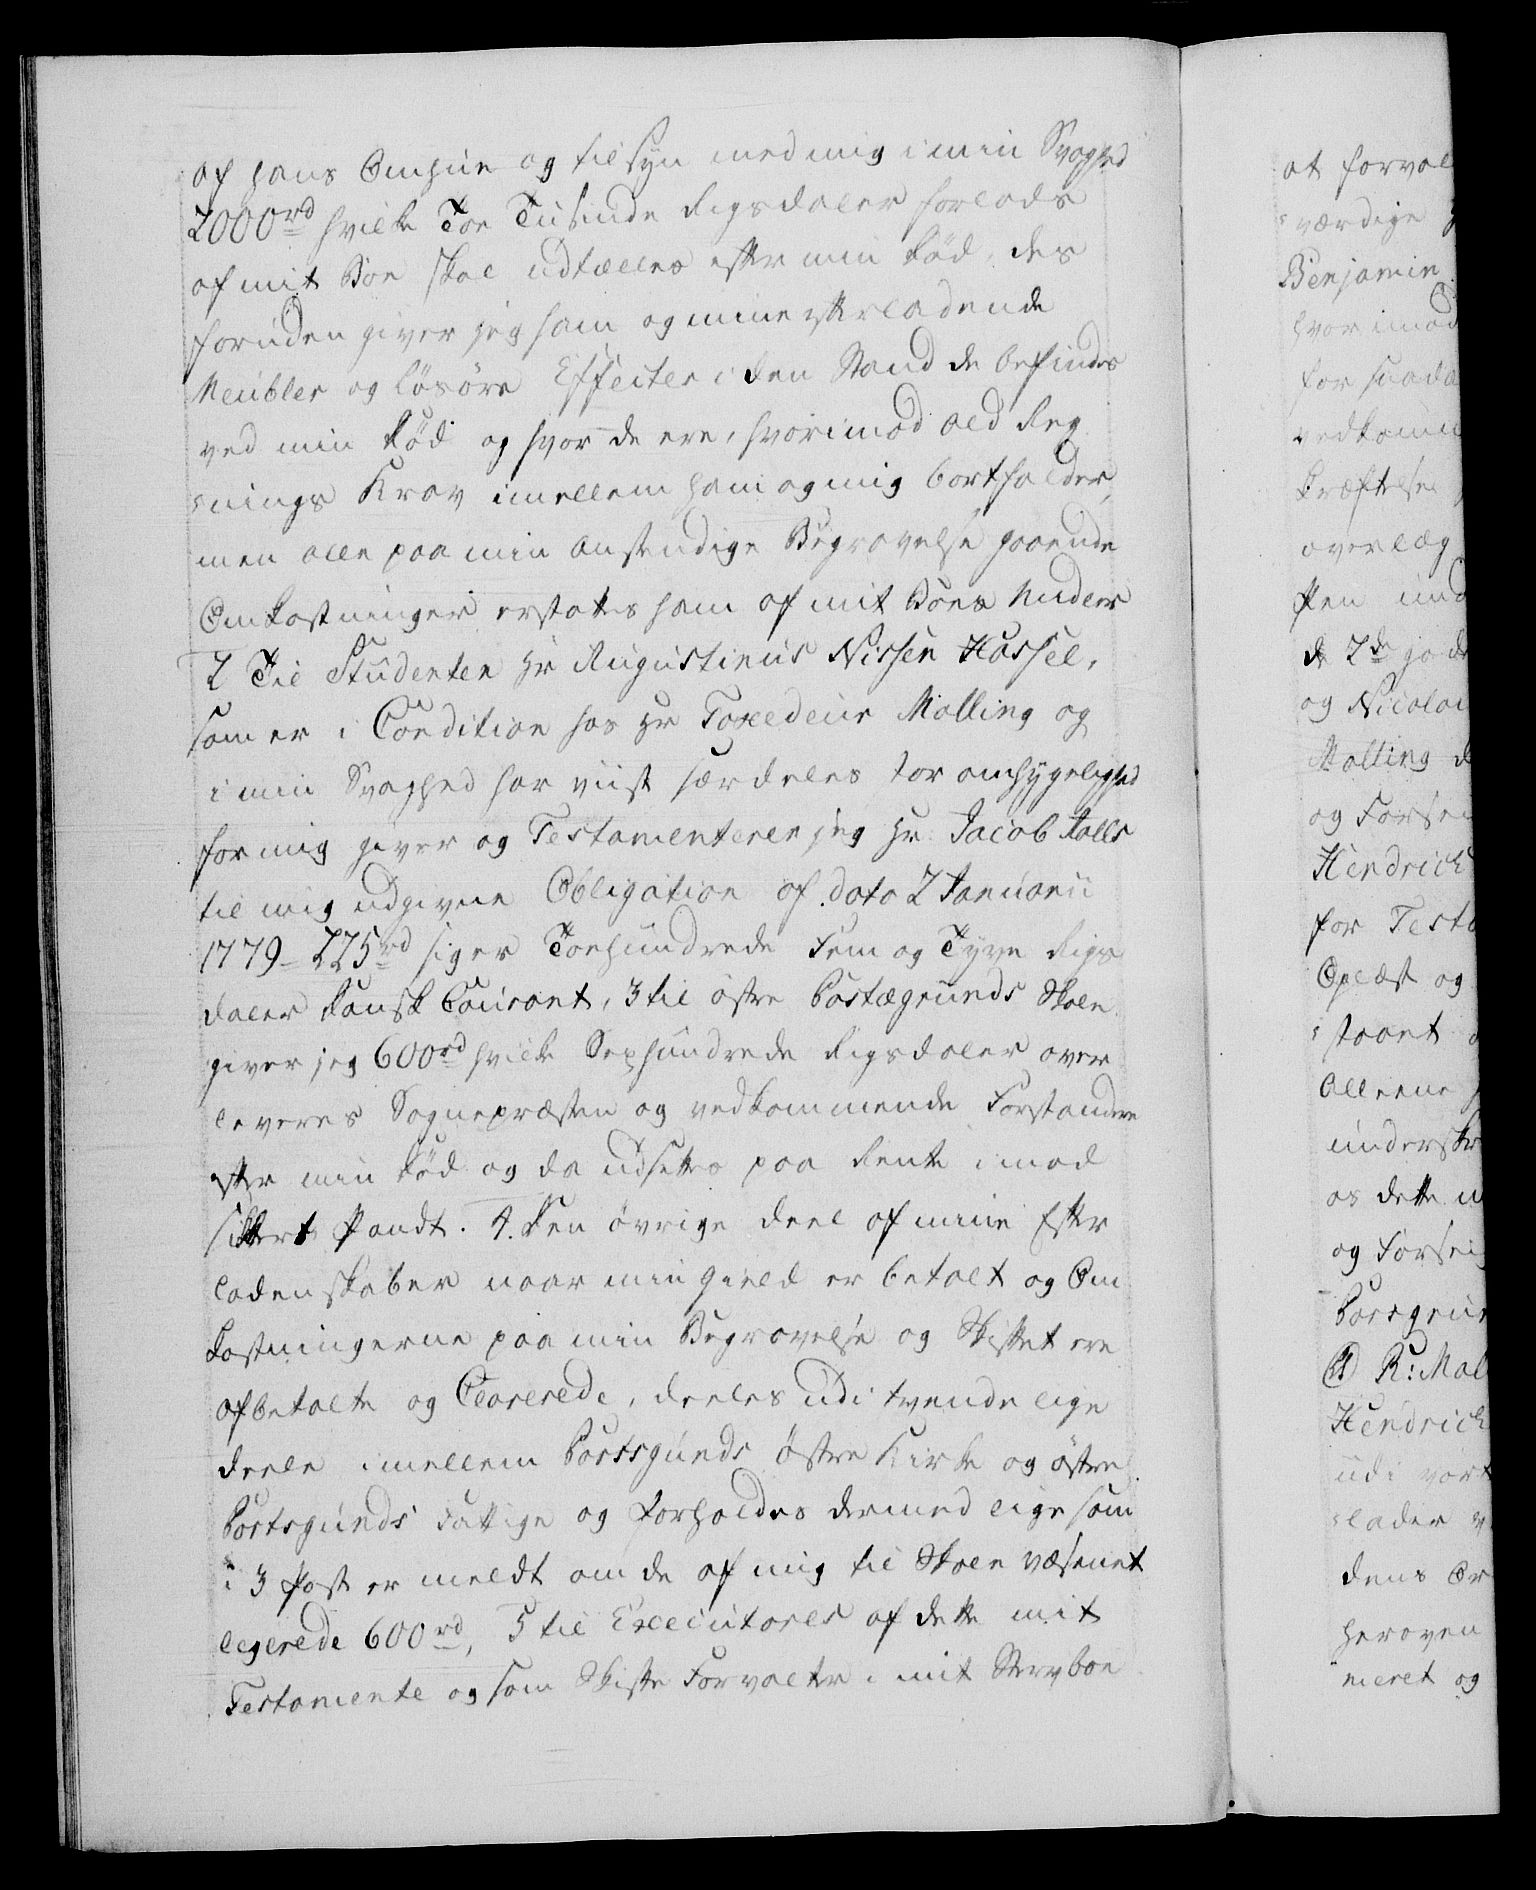 af hans Omhue og tilsyn med mig i min Svaghed
2000rd hvilke Toe Tusinde Rigsdaler forlods
af mit Boe skal udtælles efter min Død, des
foruden giver jeg ham og mine efterladende
Meubler og løsöre Effecter i den Stand de befindes
ved min Död og hvor de ere, hvorimod ald Reg
nings Krav imellem ham og mig bortfalder,
men alle paa min anstendige Begravelse gaaende
Omkostninger erstattes ham af mit Boes Midler
2 Til Studenten Hr Augustinus Nissen Hassel,
som er i Condition hos Hr Toxedeur Malling og
i min Svaghed har viist særdeles stor omhyggelighed
for mig giver og Testamenterer jeg Hr Jacob Aalls
til mig udgivne Obligation af dato 2 Januarii
1779 - 225rd siger Toehundrede Fem og Tyve Rigs
daler Dansk Courant, 3 til östre Porsgrunds Skole
giver jeg 600rd hvilke Sexhundrede Rigsdaler over
leveres Sognepræsten og vedkommende Forstandere
efter min Död og da udsettes paa Rente imod
sikkert Pandt. 4. Den övrige Deel af mine Efter
ladenskaber naar min Gield er betalt og Om
kostningerne paa min Begravelse og Skiftet ere
afbetalte og Clarerede, deeles udi tvende lige
deele imellem Portsgunds östre Kirke og östre
Portsgunds Fattige og forholdes dermed ligesom
i 3 Post er meldt om de af mig til Skole væsenet
legerede 600rd, 5 til Executores af dette mit
Testamente og som Skifte Forvalter i mit Sterbboe
at forval
værdige
Benjamin
hvorimod
for saada
vedkomm
kræftelse
overlæg
Pen und
de 2de
og Nicolai
Malling
og Forse
Hendrich
for Testa
Oplæst og
taant
Alleene
underskr
os dette
og Forsei
Porsgrun
R: Mal
Hendrich
udi vort
lader
dens Or
heroven
meret og